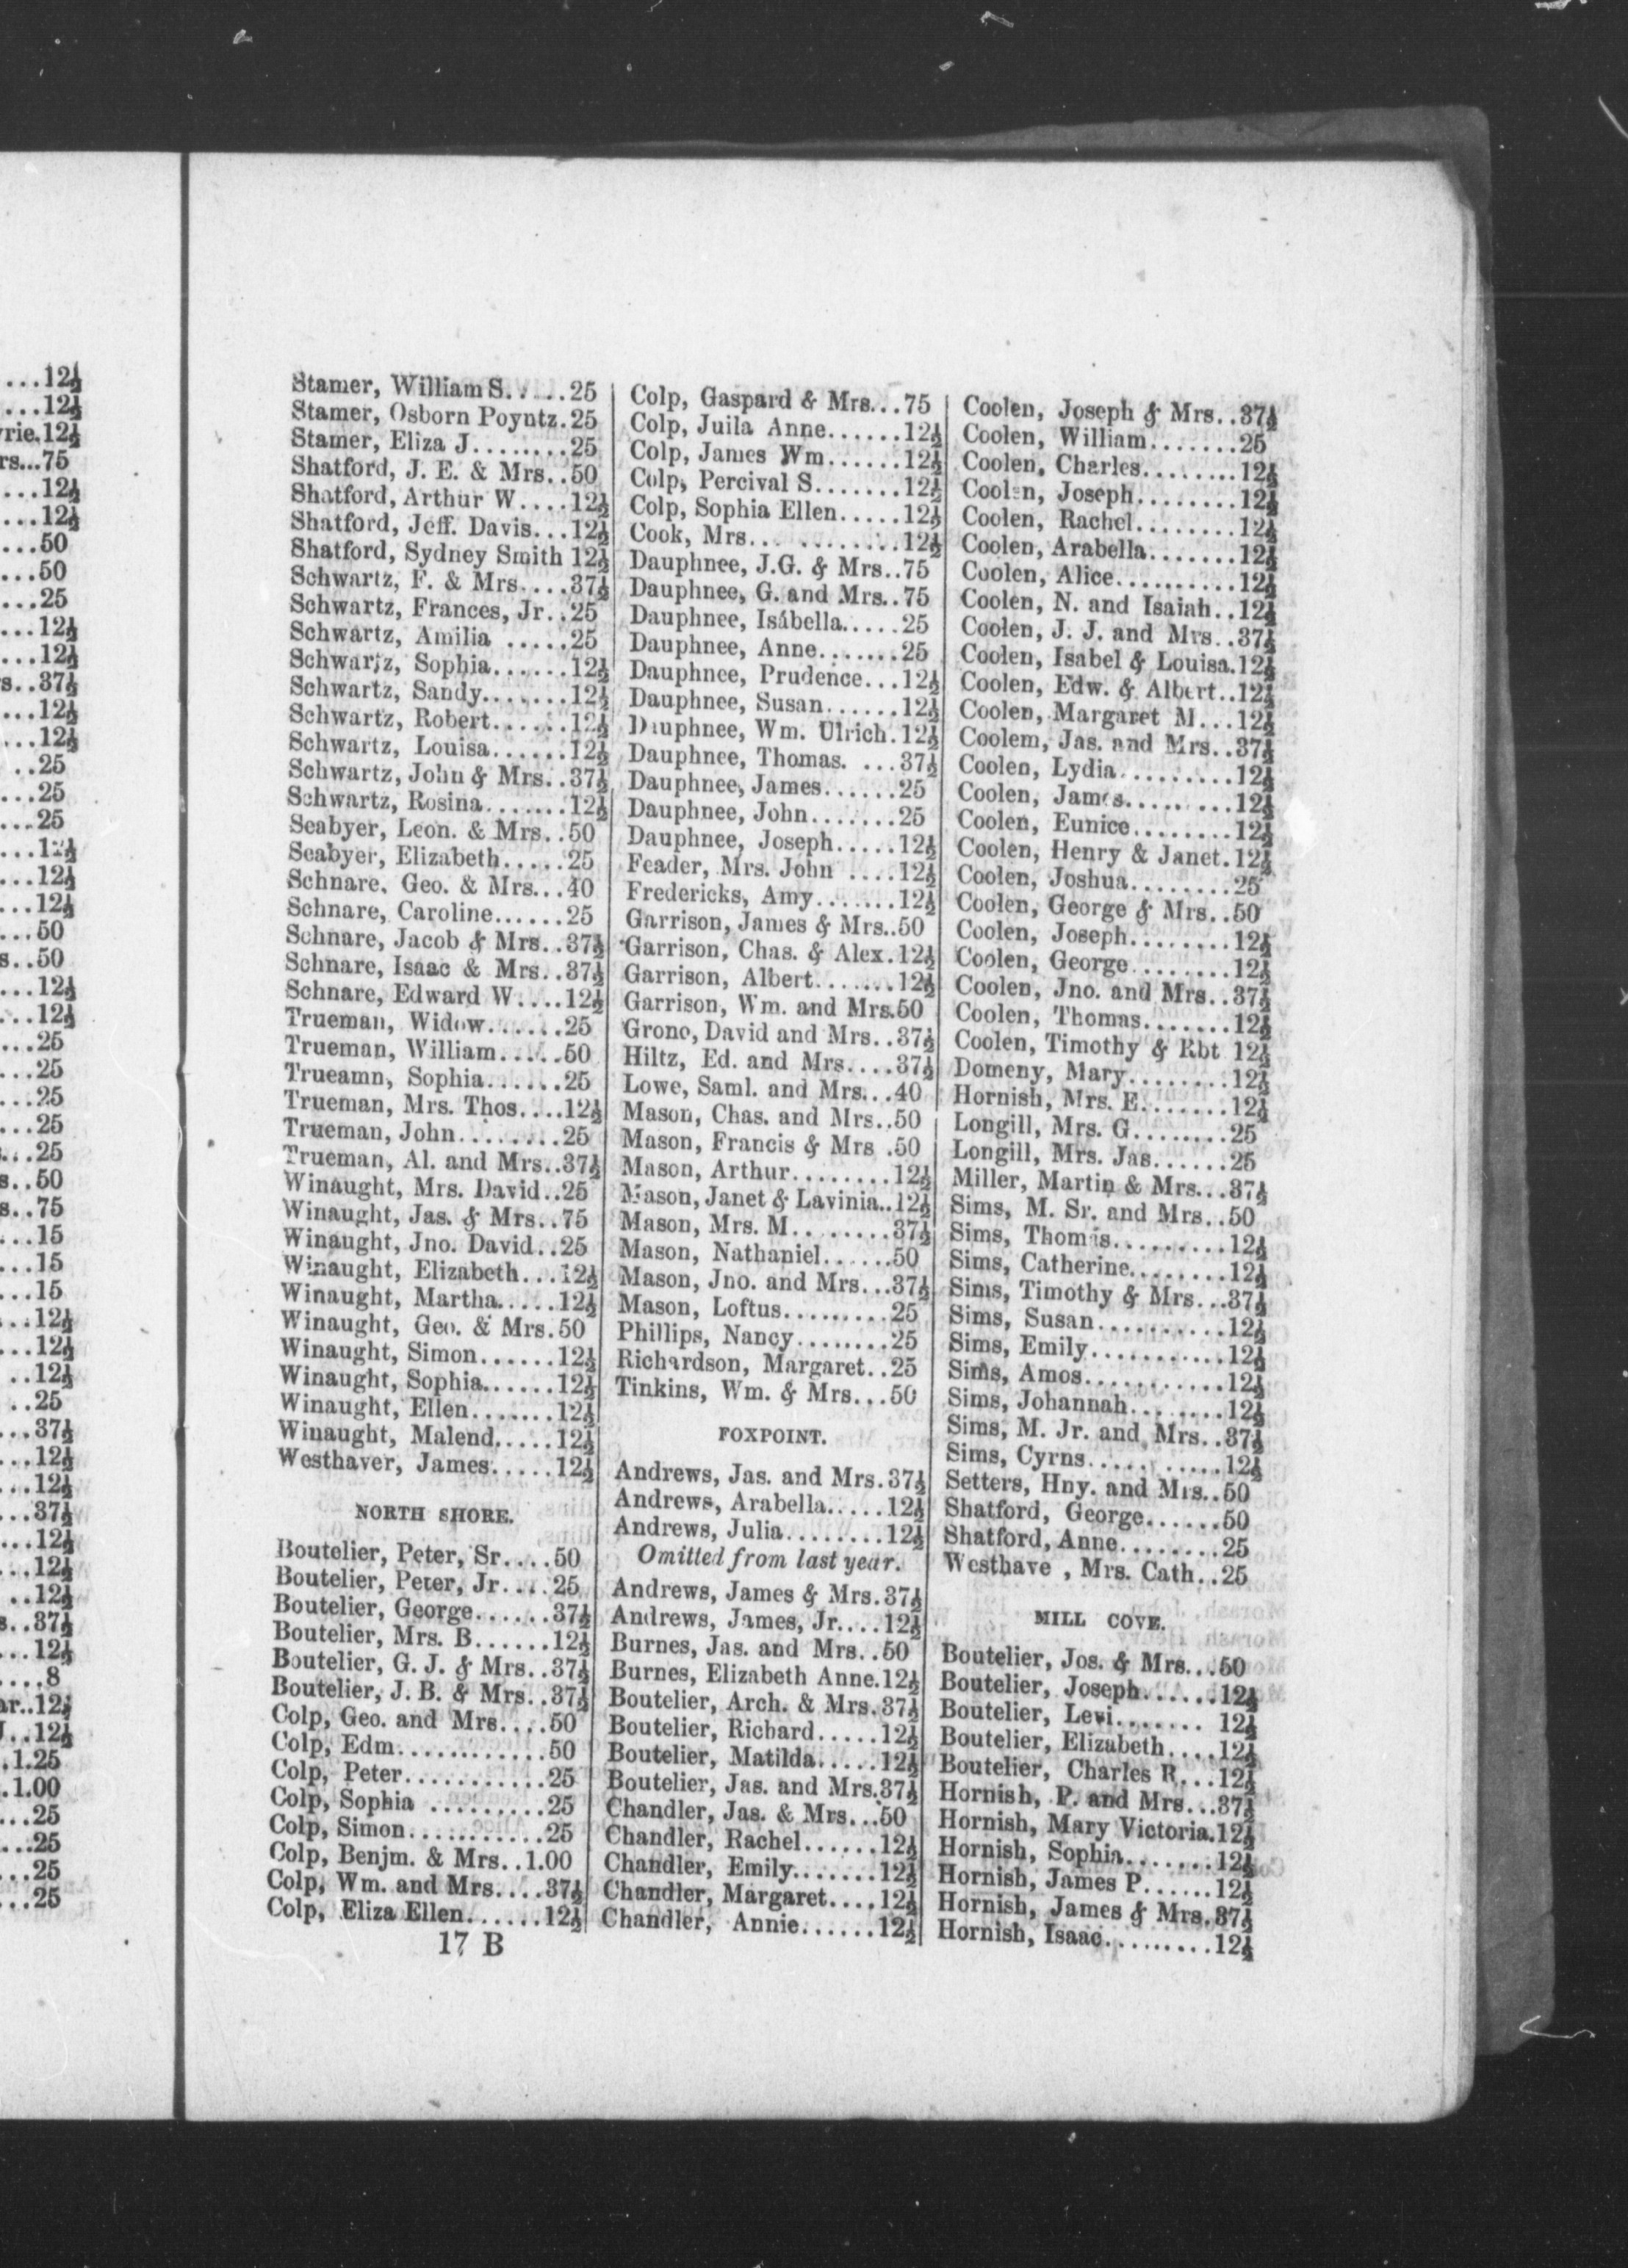 ...12½
...12½
rie.12½
rs...75
...12½
...12½
...50
...50
...25
...12½
...12½
s..37½
...12½
...12½
..25
...25
...25
...12½
...12½
...12½
...50
s..50
...12½
...12½
...25
...25
...25
...25
...25
s..50
s..75
...15
...15
...15
...12½
...12½
..12½
..25
...37½
...12½
...12½
...37½
...12½
...12½
..12½
s..37½
...12½
....8
ar..12½
J..12½
.1.25
.1.00
...25
...25
...25
...25
Stamer, William S......25
Stamer, Osborn Poyntz.25
Stamer, Eliza J.........25
Shatford, J. E. & Mrs..50
Shatford, Arthur W....12½
Shatford, Jeff. Davis...12½
Shatford, Sydney Smith 12½
Schwartz, F. & Mrs....37½
Schwartz, Frances, Jr..25
Schwartz, Amilia .....25
Schwartz, Sophia......12½
Schwartz, Sandy.......12½
Schwartz, Robert......12½
Schwartz, Louisa......12½
Schwartz, John & Mrs..37½
Schwartz, Rosina.......12½
Seabyer, Leon. & Mrs..50
Seabyer, Elizabeth.....25
Schnare, Geo. & Mrs...40
Schnare, Caroline......25
Schnare, Jacob & Mrs..37½
Schnare, Isaac & Mrs..37½
Schnare, Edward W....12½
Trueman, Widow......25
Trueman, William.....50
Trueamn, Sophia......25
Trueman, Mrs. Thos....12½
Trueman, John........25
Trueman, Al. and Mrs..37½
Winaught, Mrs. David..25
Winaught, Jas. & Mrs..75
Winaught, Jno. David..25
Winaught, Elizabeth...12½
Winaught, Martha.....12½
Winaught, Geo. & Mrs.50
Winaught, Simon......12½
Winaught, Sophia......12½
Winaught, Ellen.......12½
Winaught, Malend.....12½
Westhaver, James.....12½
NORTH SHORE.
Boutelier, Peter, Sr....50
Boutelier, Peter, Jr....25
Boutelier, George......37½
Boutelier, Mrs. B......12½
Boutelier, G. J. & Mrs..37½
Boutelier, J. B. & Mrs..37½
Colp, Geo. and Mrs....50
Colp, Edm............50
Colp, Peter...........25
Colp, Sophia .........25
Colp, Simon...........25
Colp, Benjm. & Mrs..1.00
Colp, Wm. and Mrs....37½
Colp, Eliza Ellen......12½
17 B
Colp, Gaspard & Mrs...75
Colp, Juila Anne......12½
Colp, James Wm......12½
Colp, Percival S.......12½
Colp, Sophia Ellen.....12½
Cook, Mrs... ........12½
Dauphnee, J.G. & Mrs..75
Dauphnee, G. and Mrs..75
Dauphnee, Isabella.....25
Dauphnee, Anne.......25
Dauphnee, Prudence...12½
Dauphnee, Susan......12½
Dauphnee, Wm. Ulrich.12½
Dauphnee, Thomas. ...37½
Dauphnee, James......25
Dauphnee, John.......25
Dauphnee, Joseph.....12½
Feader, Mrs. John ....12½
Fredericks, Amy.......12½
Garrison, James & Mrs..50
Garrison, Chas. & Alex.12½
Garrison, Albert.......12½
Garrison, Wm. and Mrs.50
Grono, David and Mrs..37½
Hiltz, Ed. and Mrs....37½
Lowe, Saml. and Mrs...40
Mason, Chas. and Mrs..50
Mason, Francis & Mrs .50
Mason, Arthur........12½
Mason, Janet & Lavinia..12½
Mason, Mrs. M........37½
Mason, Nathaniel......50
Mason, Jno. and Mrs...37½
Mason, Loftus.........25
Phillips, Nancy........25
Richardson, Margaret..25
Tinkins, Wm. & Mrs...50
FOXPOINT.
Andrews, Jas. and Mrs.37½
Andrews, Arabella.....12½
Andrews, Julia........12½
Omitted from last year.
Andrews, James & Mrs.37½
Andrews, James, Jr....12½
Burnes, Jas. and Mrs..50
Burnes, Elizabeth Anne.12½
Boutelier, Arch. & Mrs.37½
Boutelier, Richard.....12½
Boutelier, Matilda.....12½
Boutelier, Jas. and Mrs.37½
Chandler, Jas. & Mrs...50
Chandler, Rachel......12½
Chandler, Emily.......12½
Chandler, Margaret....12½
Chandler, Annie......12½
Coolen, Joseph & Mrs..37½
Coolen, William.......25
Coolen, Charles........12½
Coolen, Joseph........12½
Coolen, Rachel........12½
Coolen, Arabella.......12½
Coolen, Alice..........12½
Coolen, N. and Isaiah..12½
Coolen, J. J. and Mrs..37½
Coolen, Isabel & Louisa.12½
Coolen, Edw. & Albert..12½
Coolen, Margaret M...12½
Coolem, Jas. and Mrs..37½
Coolen, Lydia.........12½
Coolen, James.........12½
Coolen, Eunice........12½
Coolen, Henry & Janet.12½
Coolen, Joshua........25
Coolen, George & Mrs..50
Coolen, Joseph........12½
Coolen, George........12½
Coolen, Jno. and Mrs..37½
Coolen, Thomas.......12½
Coolen, Timothy & Rbt 12½
Domeny, Mary........12½
Hornish, Mrs. E.......12½
Longill, Mrs. G........25
Longill, Mrs. Jas......25
Miller, Martin & Mrs...37½
Sims, M. Sr. and Mrs..50
Sims, Thomas.........12½
Sims, Catherine........12½
Sims, Timothy & Mrs...37½
Sims, Susan...........12½
Sims, Emily...........12½
Sims, Amos...........12½
Sims, Johannah........12½
Sims, M. Jr. and Mrs..37½
Sims, Cyrns..... .....12½
Setters, Hny. and Mrs..50
Shatford, George......50
Shatford, Anne........25
Westhave , Mrs. Cath..25
MILL COVE.
Boutelier, Jos. & Mrs...50
Boutelier, Joseph......12½
Boutelier, Levi....... 12½
Boutelier, Elizabeth....12½
Boutelier, Charles R....12½
Hornish, P. and Mrs...37½
Hornish, Mary Victoria.12½
Hornish, Sophia.......12½
Hornish, James P......12½
Hornish, James & Mrs.37½
Hornish, Isaac.........12½